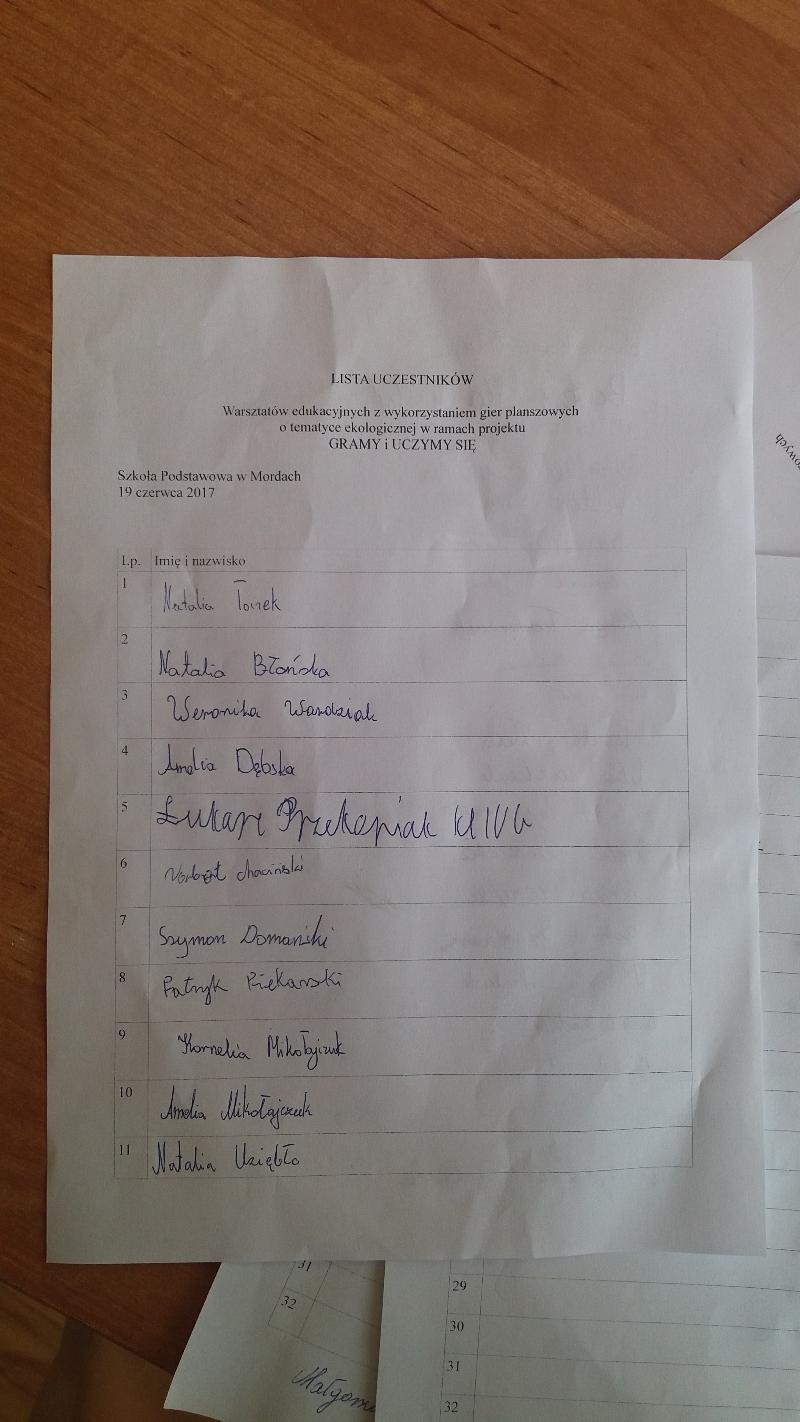 LISTA UCZESTNIKÓW
Warsztatów edukacyjnych z wykorzystaniem gier planszowych
o tematyce ekologicznej w ramach projektu
GRAMY i UCZYMY SIĘ
Szkoła Podstawowa w Mordach
19 czerwca 2017
Lp. Imię i nazwisko
1 Natalia
2 Natalia Błońska
3 Weronika Wardziak
4 Amelia Dębska
5 Przekopiak kl IV b
6 Norbert chaciński
7 Szymon Domański
8 Patryk Piekarski
9 Kornelia Mikołajczuk
10 Amelia Mikołajczuk
11 Natalia Uziębło
31
32
29
30
31
32